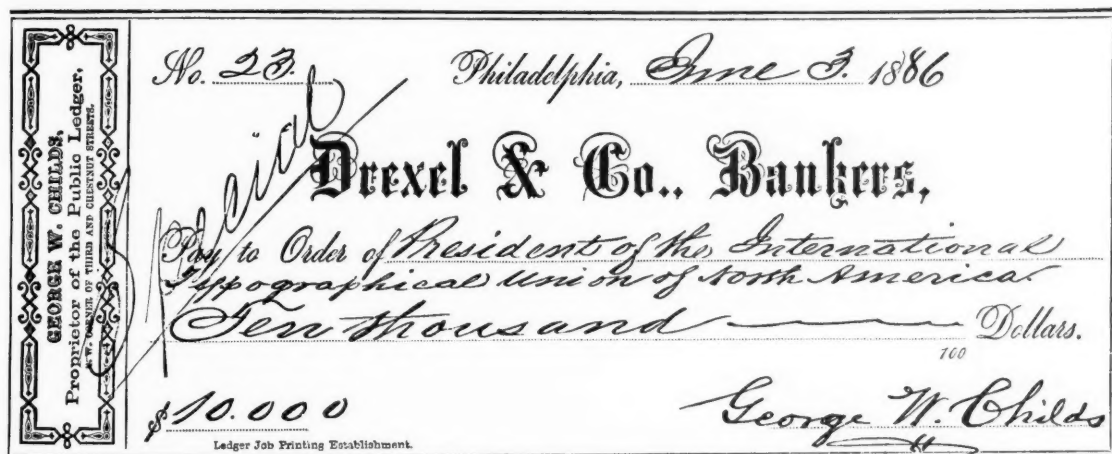 GEORGE W. CHILDS,
Proprietor of the Public Ledger,
S.W. CORNER OF THIRD AND CHESTNUT STREETS.
No. 23. Philadelphia, June 3. 1886
Special
Drexel & Co., Bankers,
Pay to Order of President of the International
Typographical Union of North America.
Ten thousand Dollars.
100
$10.000
George W. Childs
Ledger Job Printing Establishment.